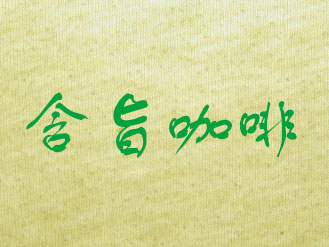 含旨咖啡